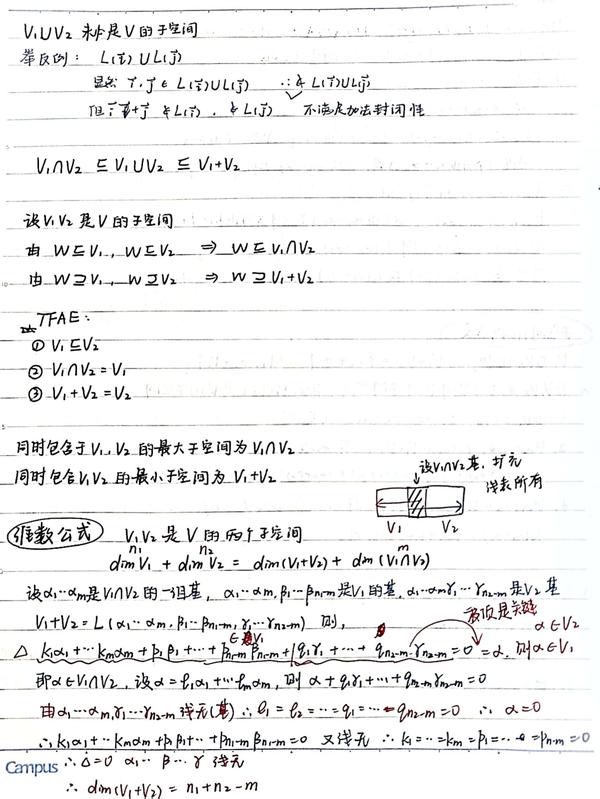 V₁∪V₂ 未必是V的子空间
举反例: L(i⃗)∪L(j⃗)
显然 i⃗, j⃗ ∈ L(i⃗)∪L(j⃗) ∴ ∉ L(i⃗)∪L(j⃗)
但 i⃗+j⃗ ∉ L(i⃗), ∉ L(j⃗) 不满足加法封闭性
V₁∩V₂ ⊆ V₁∪V₂ ⊆ V₁+V₂
设V₁V₂是V的子空间
由 W⊆V₁, W⊆V₂ ⇒ W⊆V₁∩V₂
由 W⊇V₁, W⊇V₂ ⇒ W⊇V₁+V₂
TFAE:
① V₁⊆V₂
② V₁∩V₂=V₁
③ V₁+V₂=V₂
同时包含于V₁,V₂的最大子空间为V₁∩V₂
同时包含V₁V₂的最小子空间为 V₁+V₂
设V₁∩V₂基, 扩充
线表所有
V₁ V₂
维数公式 V₁V₂是V的两个子空间
n₁ n₂ m
dimV₁ + dimV₂ = dim(V₁+V₂) + dim(V₁∩V₂)
设α₁⋯αm是V₁∩V₂的一组基, α₁⋯αm, β₁⋯βn₁-m是V₁的基, α₁⋯αmγ₁⋯γn₂-m是V₂基
V₁+V₂=L(α₁⋯αm, β₁⋯βn₁-m, γ₁⋯γn₂-m) 则,
移项是关键
∈V₁ α∈V₂
△ k₁α₁+⋯kmαm+p₁β₁+⋯+pn₁-mβn₁-m+q₁γ₁+⋯+qn₂-mγn₂-m=0=α, 则α∈V₁
即α∈V₁∩V₂, 设α=l₁α₁+⋯lmαm, 则 α+q₁γ₁+⋯+qn₂-mγn₂-m=0
由α₁⋯αm,γ₁⋯γn₂-m 线无(基) ∴ l₁=l₂=⋯=q₁=⋯qn₂-m=0 ∴ α=0
∴ k₁α₁+⋯kmαm+p₁β₁+⋯+pn₁-mβn₁-m=0 又线无 ∴ k₁=⋯=km=p₁=⋯=pn₁-m=0
Campus ∴△=0 α₁⋯ β⋯ γ 线无
∴ dim(V₁+V₂) = n₁+n₂-m